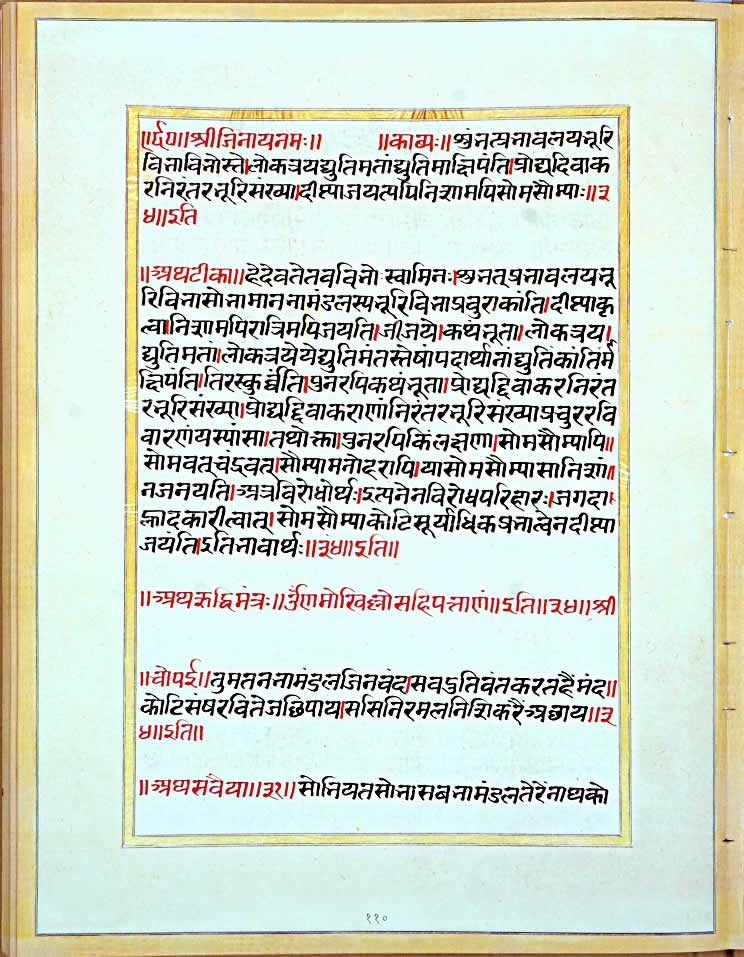 ॥र्द॥०॥श्रीजिनायनमः॥ ॥काव्यः॥शुंनत्प्रनावलयनूरि
विनाविनोस्ते।लोकत्रयद्युतिमतांद्युतिमाक्षिपंति।प्रोद्यद्दिवाक
रनिरंतरनूरिसंख्या।दीप्त्याजयत्यपिनिशामपिसोमसौम्याः॥३
४॥इति
॥अथटीका॥हेदेवतेतवविनोःस्वामिनः।शुनत्प्रनावलयनू
रिविनासोनामाननामंडलस्यनूरिविनाप्रचुराकांति।दीप्त्याकृ
त्वा।निशामपिरात्रिमपिजयति।जीजये।कथंनूता।लोकत्रय।
द्युतिमतां।लोकत्रयेयेद्युतिमंतस्तेषांपदार्थानांद्युतिकांतिर्म
क्षिपंति।तिरस्कुर्व्वंति।पुनरपिकथंनूता।प्रोद्यद्दिवाकरनिरंत
रनूरिसंख्या।प्रोद्यद्दिवाकराणांनिरंतरनूरिसंख्याप्रचुररवि
वारणंयस्यांसा।तथोक्ता।पुनरपिकिंलक्षणा।सोमसौम्यापि॥
सोमवत्चंद्रवत्।सौम्यामनोहरापि।यासोमसौम्यासानिशां॥
नजनयति।अत्रविरोधोर्थः।इत्यनेनविरोधपरिहारः।जगदा।
ह्लादकारीत्वात्।सोमसौम्याकोटिसूर्याधिकप्रनात्वेनदीप्त्या
जयंति।इतिनावार्थः॥३४॥इति॥
॥अथऋद्धिमंत्रः॥उँणमोखिल्लोसहिपत्ताणं॥इति॥३४॥श्री
॥चोपई॥तुमतननामंडलजिनचंद।सवदुतिवंतकरतहैंमंद॥
कोटिसंषरवितेजछिपाय।मसिनिरमलनिशिकरैंअछाय॥३
४॥इति॥
॥अथसवैया॥३१॥सोनियतसोनासबनामंडलतेरेंनाथको
११०